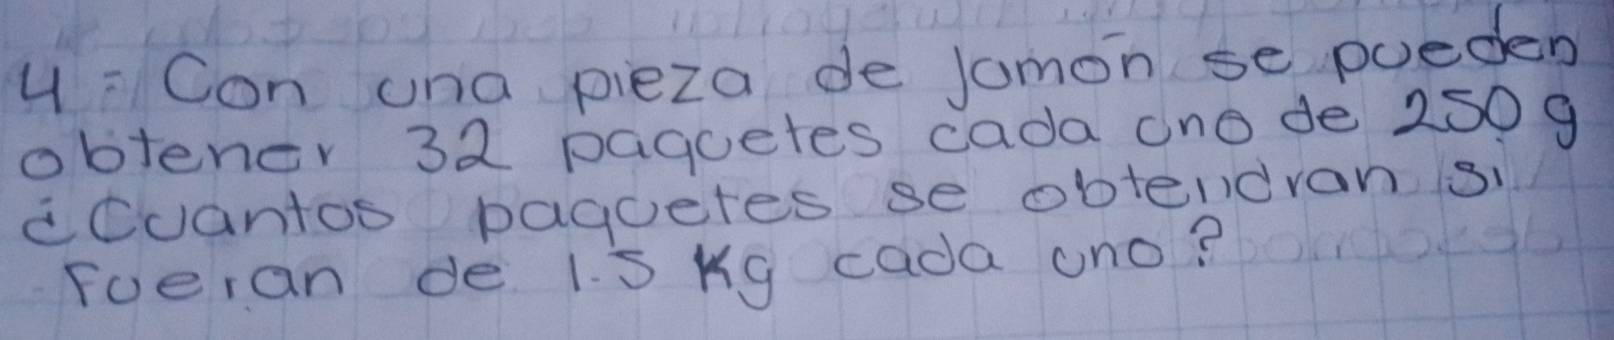 4= Con una pieza de Jamón se pueden
obtener 32 paquetes cada uno de 250 g
¿Cuantos paquetes se obtendran si
fueran de 1.5 Kg cada uno?